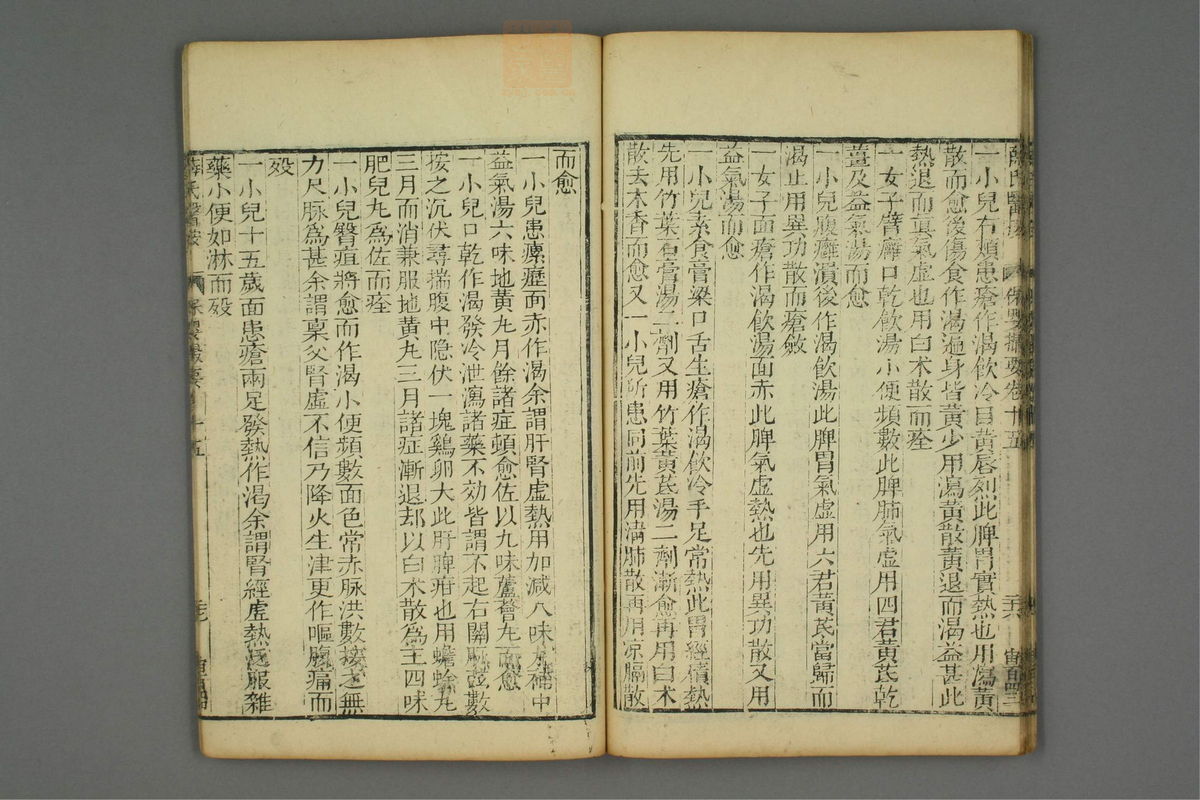 薛氏醫按 保嬰撮要卷十五
一小兒右頰患瘡作渴飲冷目黃唇烈此脾胃實熱也用瀉黃
散而愈後傷食作渴遍身皆黃少用瀉黃散黃退而渴益甚此
熱退而真氣虛也用白朮散而痊
一女子臂癰口乾飲湯小便頻數此脾肺氣虛用四君黃芪乾
薑及益氣湯而愈
一小兒腹癰潰後作渴飲湯此脾胃氣虛用六君黃芪當歸而
渴止用異功散而瘡斂
一女子面瘡作渴飲湯面赤此脾氣虛熱也先用異功散又用
益氣湯而愈
一小兒素食膏粱口舌生瘡作渴飲冷手足常熱此胃經積熱
先用竹葉石膏湯二劑又用竹葉黃芪湯二劑漸愈再用白朮
散去木香而愈又一小兒所患同前先用清肺散再用涼膈散
而愈
一小兒患瘰癧面赤作渴余謂肝腎虛熱用加減八味丸補中
益氣湯六味地黃丸月餘諸症頓愈佐以九味蘆薈丸而愈
一小兒口乾作渴發冷泄瀉諸藥不効皆謂不起右關脉弦數
按之沉伏尋揣腹中隐伏一塊鷄卵大此肝脾疳也用蟾蜍丸
三月而消兼服地黃丸三月諸症漸退却以白朮散為主四味
肥兒丸為佐而痊
一小兒臀疽將愈而作渴小便頻數面色常赤脉洪數按之無
力尺脉為甚余謂稟父腎虛不信乃降火生津更作嘔腹痛而
歿
一小兒十五歲面患瘡兩足發熱作渴余謂腎經虛熱泛服雜
藥小便如淋而歿
薛氏醫按 保嬰撮要 十五